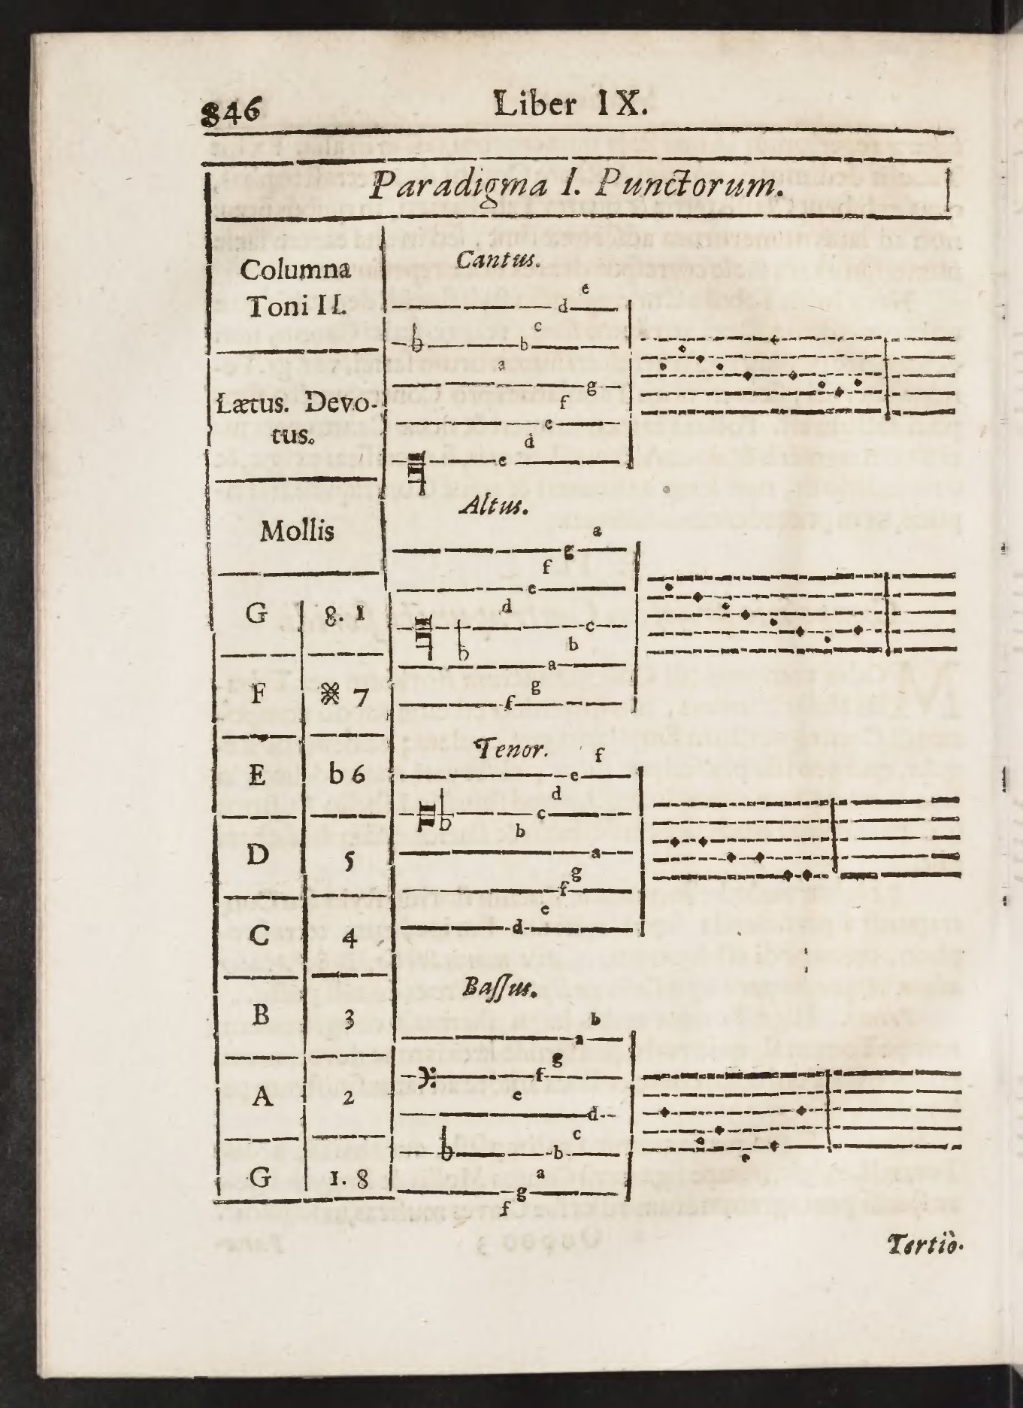 846 Liber IX.
Paradigma I. Punctorum.
Columna
Toni II.
Lætus. Devo-
tus.
Mollis
G 8. 1
F ※ 7
E b 6
D 5
C 4
B 3
A 2
G 1. 8
Cantus.
e
d
c
b
a
g
f
e
d
c
Altus.
a
g
f
e
d
c
b
a
g
f
Tenor. f
e
d
c
b
a
g
f
e
d
Baſſus.
b
a
g
f
e
d
c
b
a
g
f
Tertiò.